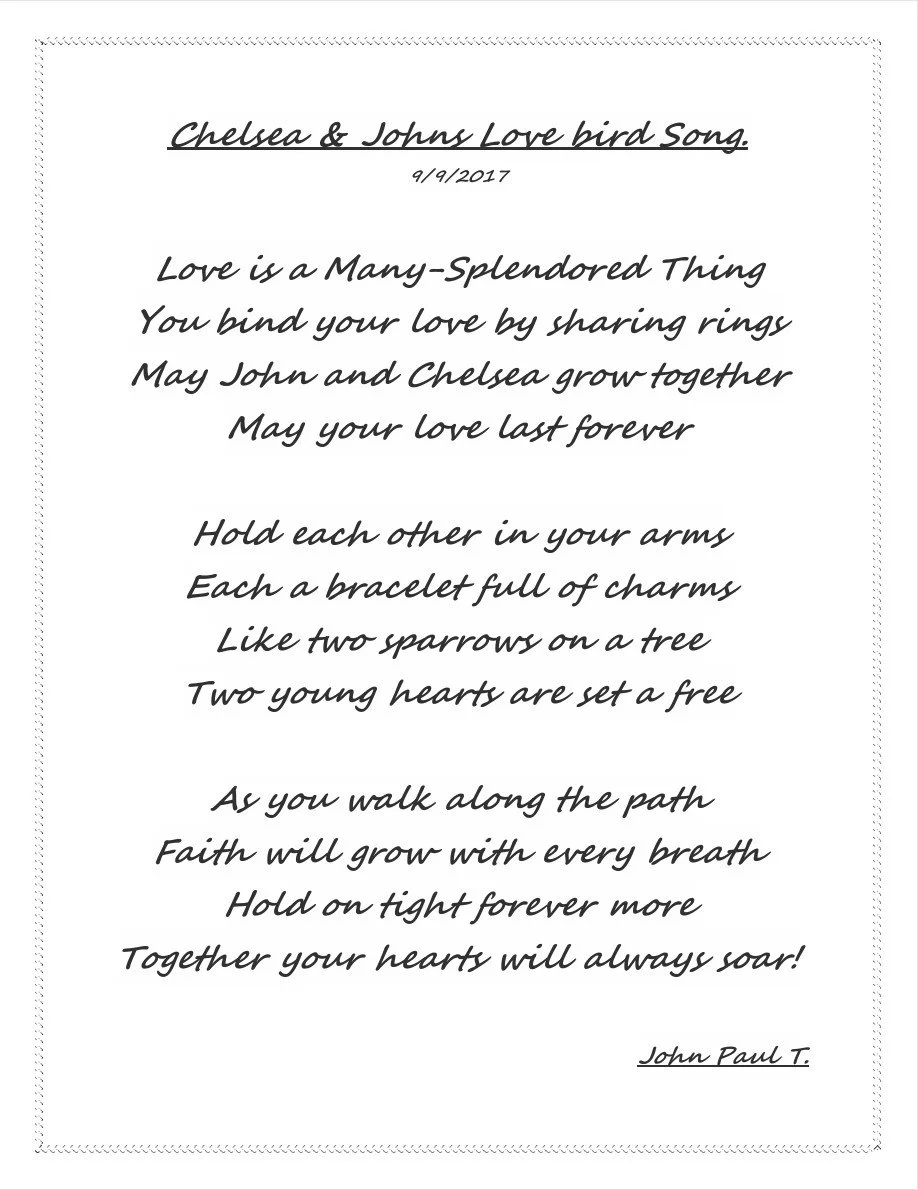 Chelsea & Johns Love bird Song.
9/9/2017
Love is a Many-Splendored Thing
You bind your love by sharing rings
May John and Chelsea grow together
May your love last forever
Hold each other in your arms
Each a bracelet full of charms
Like two sparrows on a tree
Two young hearts are set a free
As you walk along the path
Faith will grow with every breath
Hold on tight forever more
Together your hearts will always soar!
John Paul T.